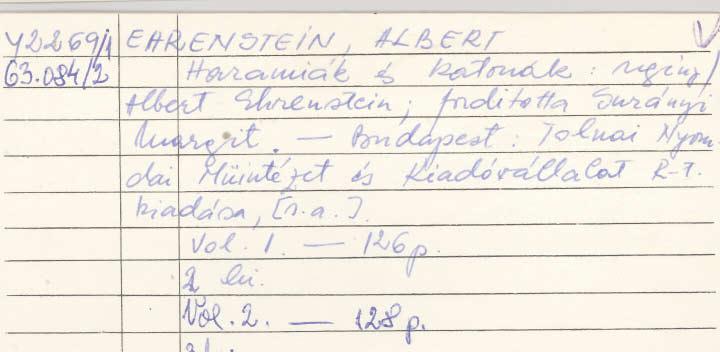 42269/1 EHRENSTEIN, ALBERT
63.084/2 Haramiák és katonák : regény /
Albert Ehrenstein ; fordította Surányi
Margit. — Budapest : Tolnai Nyom-
dai Müintézet és Kiadóvállalat R-T.
kiadása, [s.a.].
Vol. 1. — 126 p.
2 lei.
Vol. 2. — 128 p.